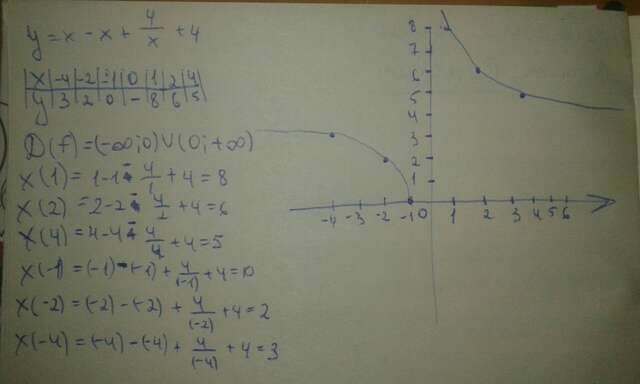 y = x - x + 4/x + 4
x | -4 | -2 | -1 | 0 | 1 | 2 | 4
y | 3 | 2 | 0 | - | 8 | 6 | 5
D(f) = (-∞; 0) ∪ (0; +∞)
x(1) = 1 - 1 + 4/1 + 4 = 8
x(2) = 2 - 2 + 4/2 + 4 = 6
x(4) = 4 - 4 + 4/4 + 4 = 5
x(-1) = (-1) - (-1) + 4/(-1) + 4 = 0
x(-2) = (-2) - (-2) + 4/(-2) + 4 = 2
x(-4) = (-4) - (-4) + 4/(-4) + 4 = 3
8
7
6
5
4
3
2
1
-4 -3 -2 -1 0 1 2 3 4 5 6